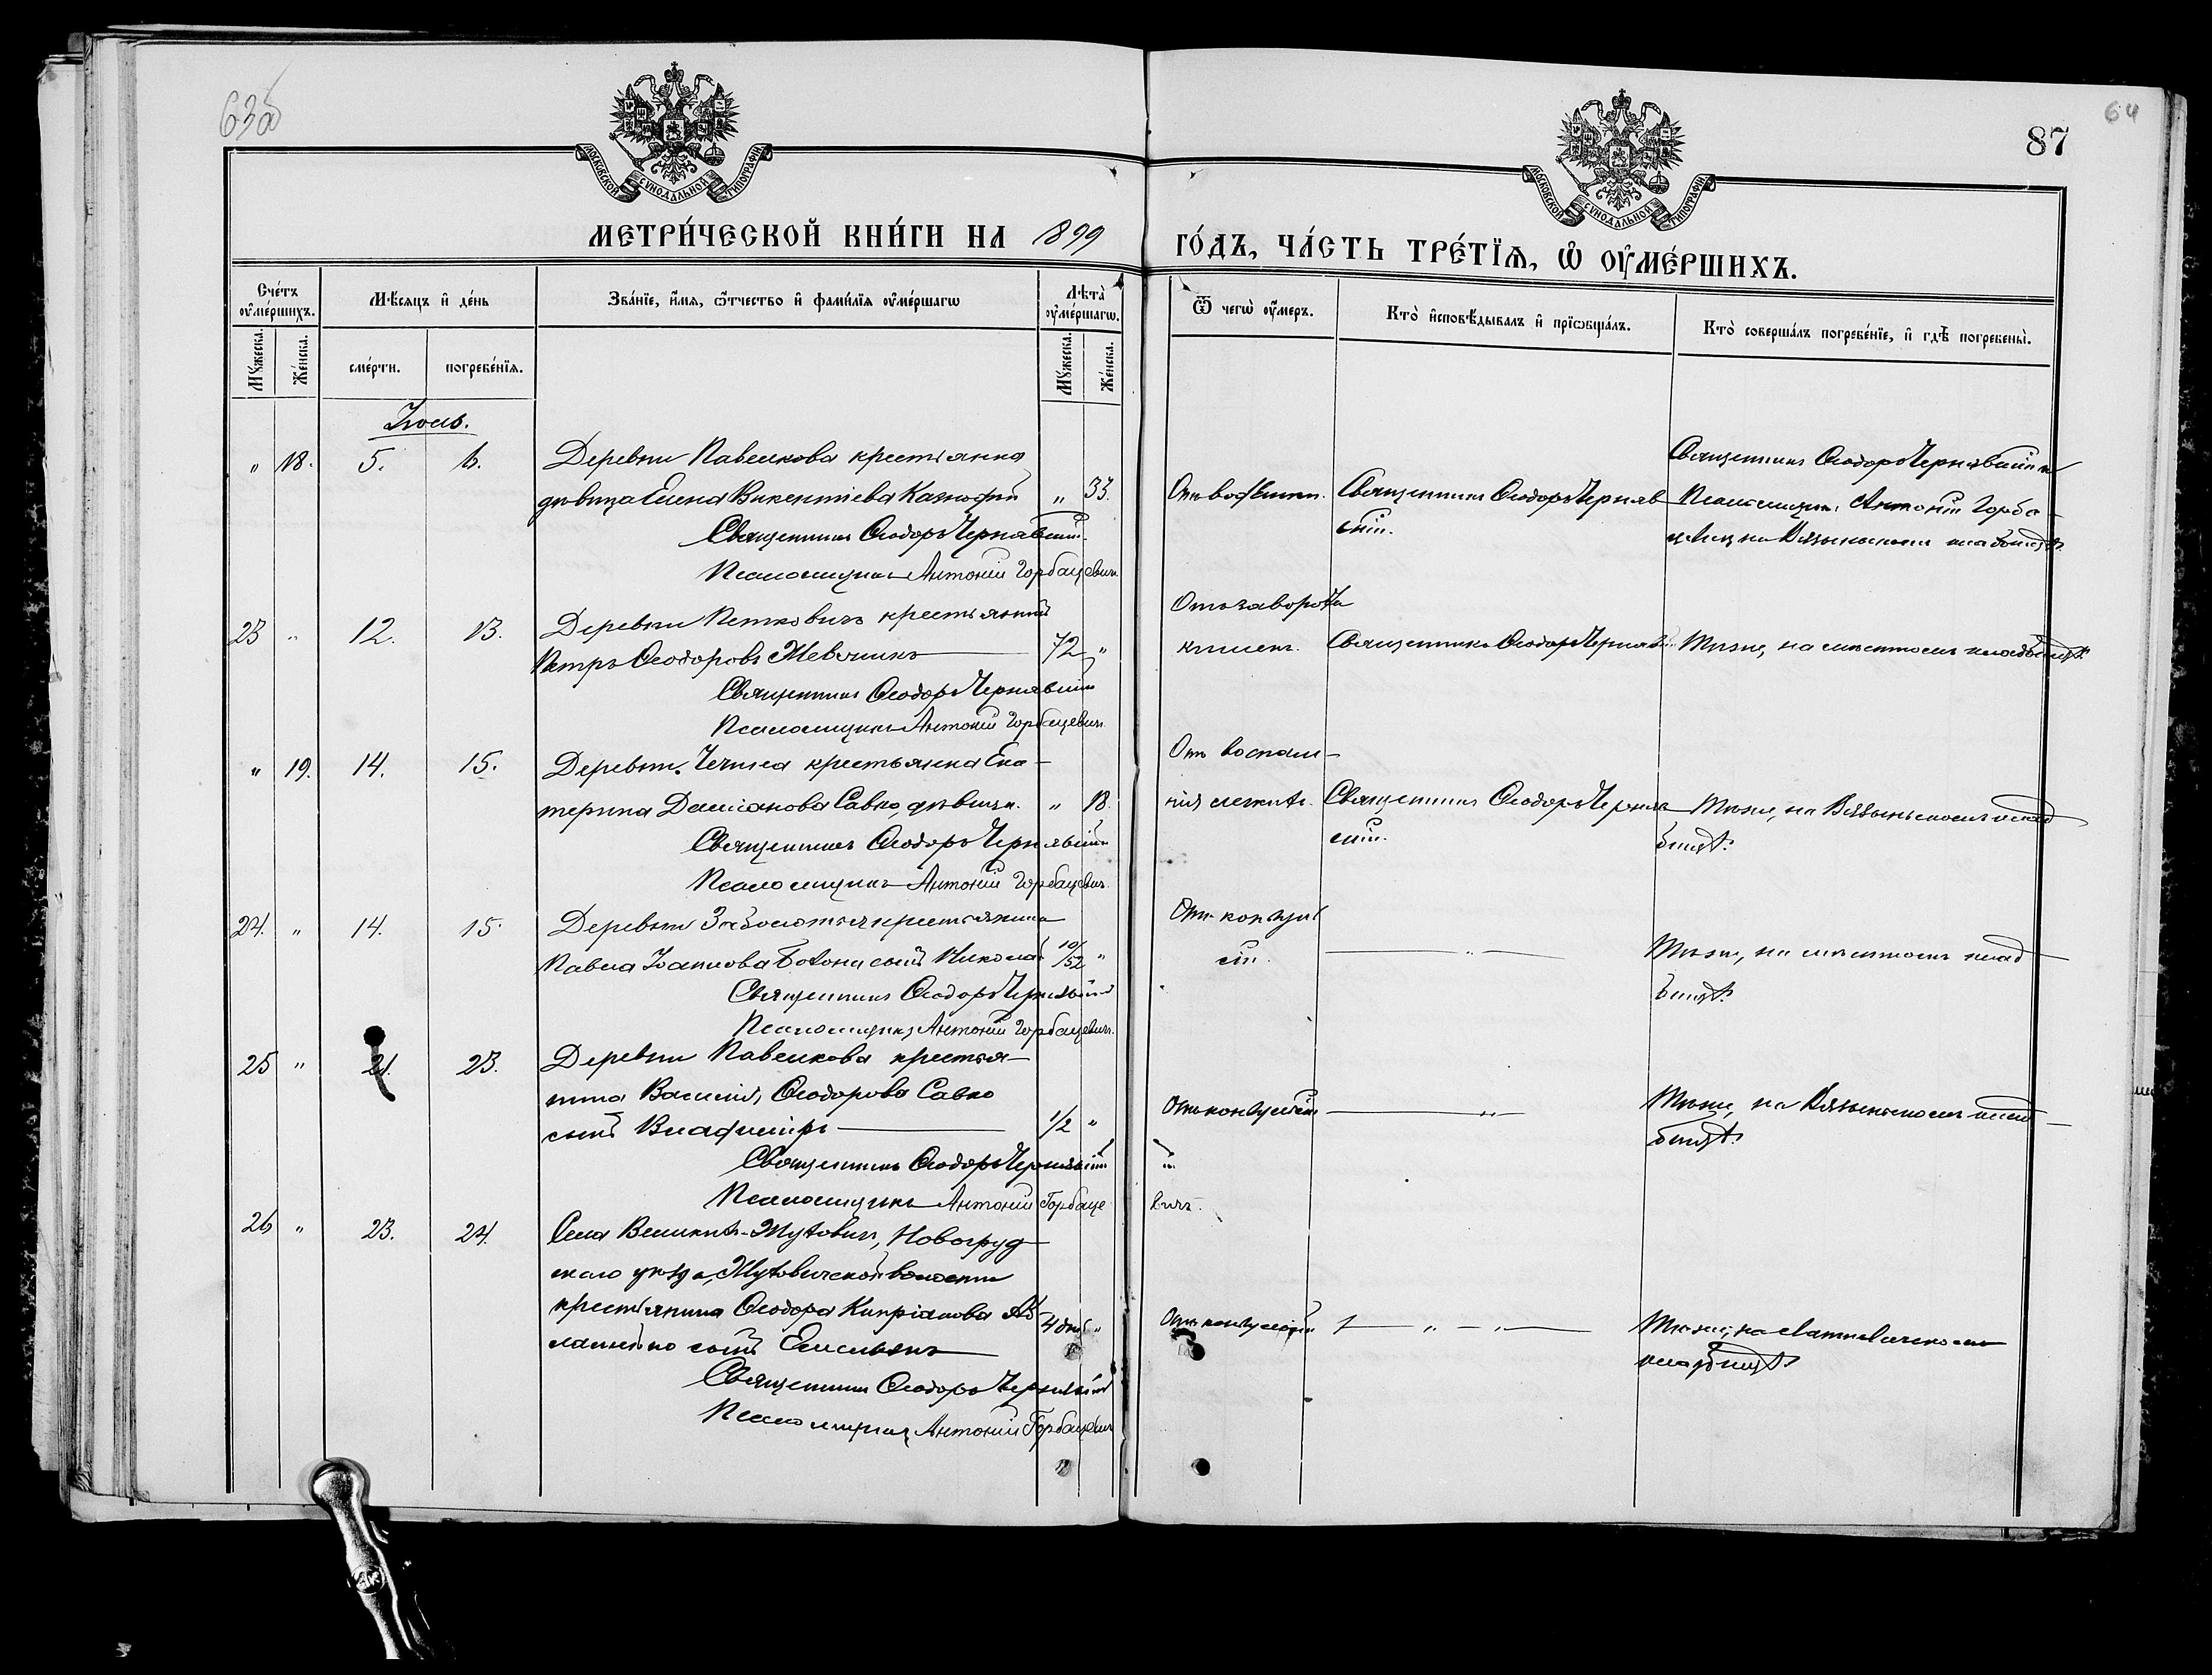 63об
64
87
МОСКОВСКОЙ СѴНОДАЛЬНОЙ ТИПОГРАФІИ
МОСКОВСКОЙ СѴНОДАЛЬНОЙ ТИПОГРАФІИ
МЕТРИ́ЧЕСКОЙ КНИ́ГИ НА 1899
ГО́ДЪ, ЧА́СТЬ ТРЕ́ТЇѦ, Ѡ҆ ОУ҆МЕ́РШИХЪ.
Сче́тъ оу҆ме́ршихъ.
Мꙋ́жеска.
Же́нска.
Мѣ́сѧцъ и҆ де́нь
сме́рти.
погребе́нїѧ.
Зва́нїе, и҆́мѧ, ѻ҆́тчество и҆ фами́лїѧ оу҆ме́ршагѡ
Лѣ́та оу҆ме́ршагѡ.
Мꙋ́жеска.
Же́нска.
Ѿ чегѡ̀ оу҆́меръ.
Кто̀ и҆сповѣ́дывалъ и҆ прїѡбща́лъ.
Кто̀ соверша́лъ погребе́нїе, и҆ гдѣ̀ погребены̀.
Іюль.
" 18. 5. 6. Деревни Павелкова крестьянка
дѣвица Елена Викентіева " 33.
Священникъ Ѳеодоръ Чернявскій.
Псаломщикъ Антоній Горбацевичъ.
Отъ водянки. Священникъ Ѳеодоръ Черняв
скій.
Священникъ Ѳеодоръ Чернявскій и
Псаломщикъ Антоній Горба-
цевичъ на кладбищѣ.
23 " 12. 13. Деревни Петковичъ крестьянинъ
Петръ Ѳеодоровъ 72 "
Священникъ Ѳеодоръ Чернявскій
Псаломщикъ Антоній Горбацевичъ.
Отъ заворота
кишекъ. Священникъ Ѳеодоръ Чернявскій Тѣже, на мѣстномъ кладбищѣ.
" 19. 14. 15. Деревни крестьянка Ека-
терина Даміанова Савко, дѣвица. " 18.
Священникъ Ѳеодоръ Чернявскій
Псаломщикъ Антоній Горбацевичъ.
Отъ воспале-
нія легкихъ. Священникъ Ѳеодоръ Черняв
скій.
Тѣже, на клад
бищѣ.
24. " 14. 15. Деревни Заболотья крестьянина
Павла Іоаннова сынъ Николай 10/52 "
Священникъ Ѳеодоръ Чернявскій
Псаломщикъ Антоній Горбацевичъ.
Отъ конвул
сіи. "
Тѣже, на мѣстномъ клад
бищѣ.
25 " 21. 23. Деревни Павелкова крестья-
нина Василія Ѳеодорова Савко
сынъ Владиміръ 1/2 "
Священникъ Ѳеодоръ Чернявскій
Псаломщикъ Антоній Горбаце
вичъ.
Отъ конвулсіи "
Тѣже, на клад
бищѣ.
26 " 23. 24. Села Новогруд
скаго уѣзда, волости
крестьянина Ѳеодора Кипріанова
сынъ Емельянъ 4 дней "
Священникъ Ѳеодоръ Чернявскій
Псаломщикъ Антоній Горбацевичъ
Отъ конвулсіи " "
Тѣже, на
кладбищѣ.